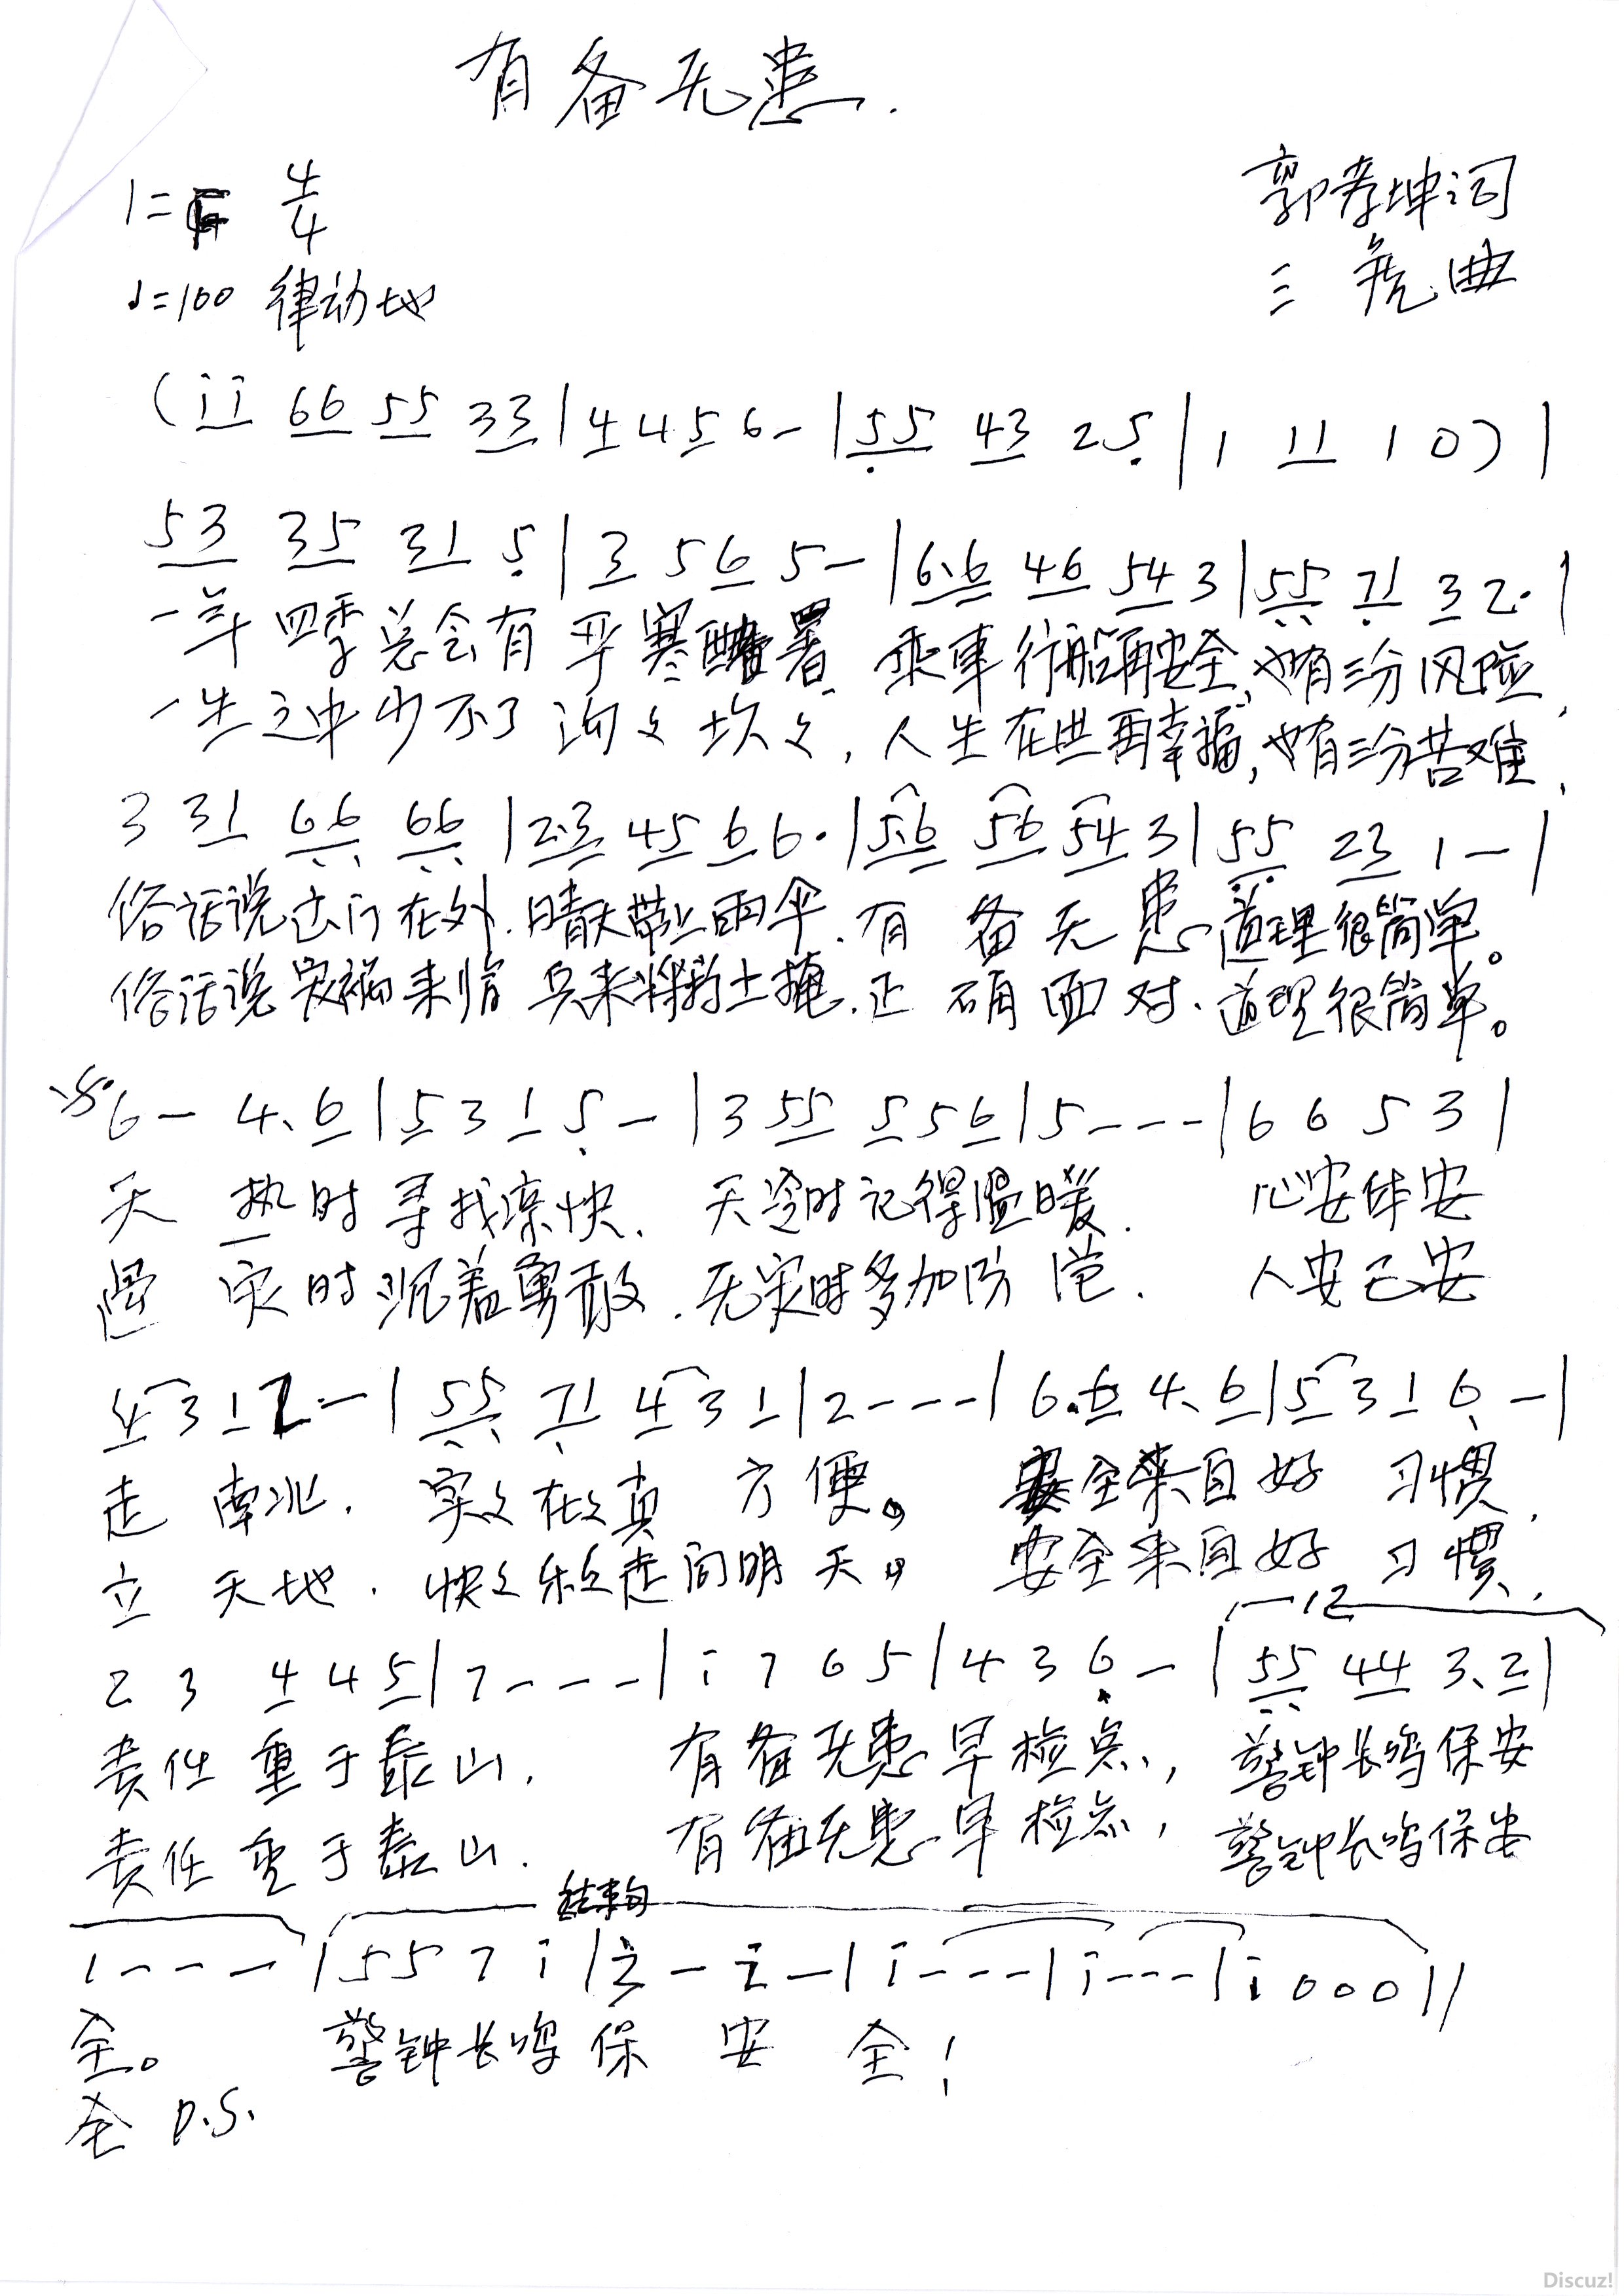 有备无患.
1=F 4/4
郭孝坤词
♩=100 律动地
三虎曲
(i i 66 55 33 | 4 4 5 6 - | 55 43 2 5 | 1 11 1 0) |
53 35 31 5 | 3 5 6 5 - | 6.6 46 54 3 | 55 71 3 2. |
一年四季总会有严寒酷暑 乘车行船再安全,也有三分风险,
一生之中少不了沟々坎々,人生在世再幸福,也有三分苦难,
3 31 66 66 | 2.3 45 6 6. | 5.6 56 54 3 | 55 23 1 - |
俗话说出门在外.晴天带上雨伞.有备无患道理很简单。
俗话说灾祸来临 兵来将挡土掩.正确面对.道理很简单。
6 - 4. 6 | 5 3 1 5 - | 3 55 5 5 6 | 5 - - - | 6 6 5 3 |
天热时寻找凉快. 天冷时记得温暖. 心安体安
遇灾时沉着勇敢.无灾时多加防范. 人安己安
4 3 1 2 - | 55 71 4 3 1 | 2 - - - | 6.6 4. 6 | 5 3 1 6 - |
走南北. 实々在々真方便。 安全来自好习惯,
立天地. 快々乐々走向明天。 安全来自好习惯,
12
2 3 4 4 5 | 7 - - - | i 7 6 5 | 4 3 6 - | 55 44 3. 2 |
责任重于泰山. 有备无患早检点, 警钟长鸣保安
责任重于泰山. 有备无患早检点, 警钟长鸣保安
结束句
1 - - - | 5 5 7 i | 2 - 2 - | i - - - | i - - - | i 0 0 0 ||
全。 警钟长鸣保安全!
全 D.S.
Discuz!